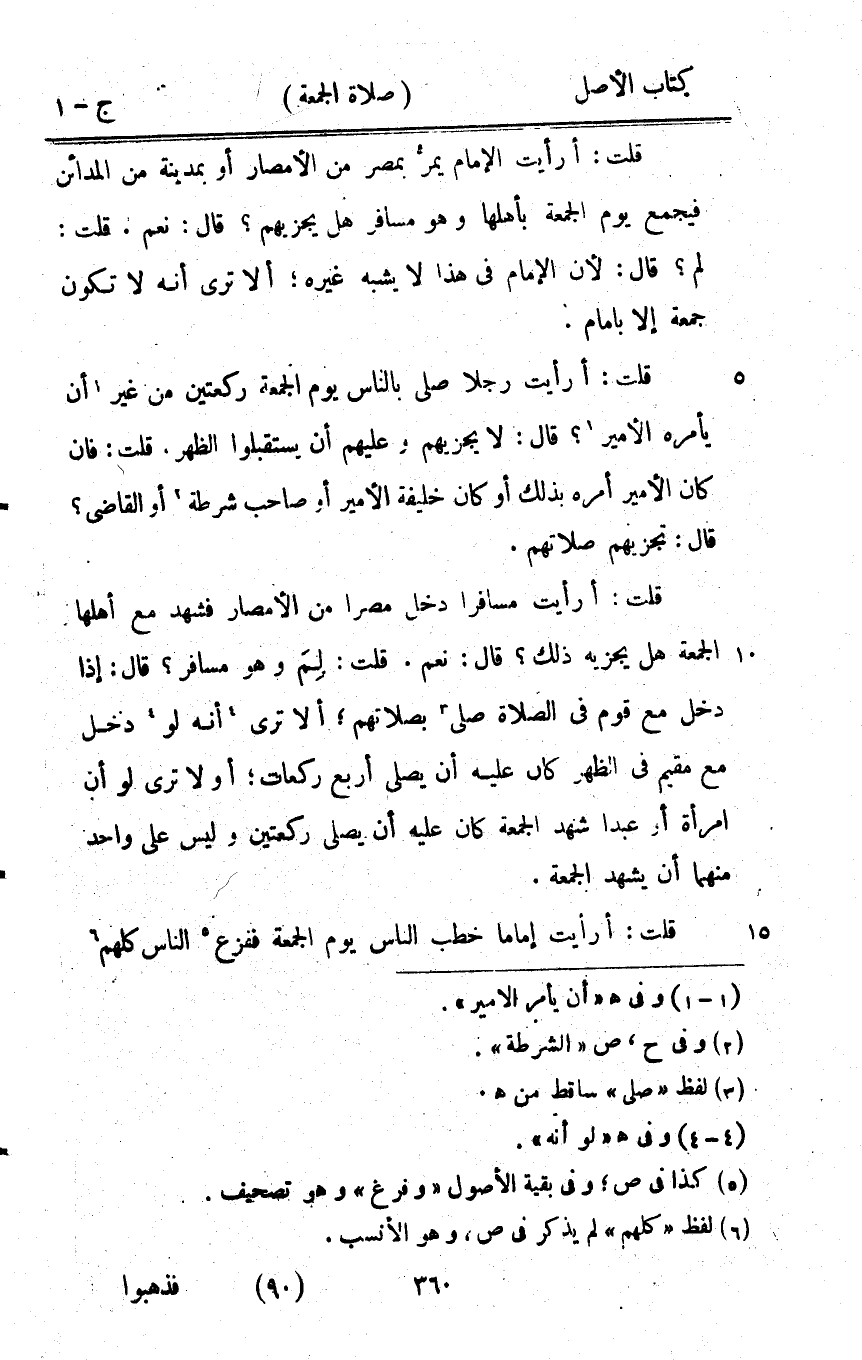 كتاب الأصل (صلاة الجمعة) ج - ١
قلت: أ رأيت الإمام يمر بمصر من الأمصار أو بمدينة من المدائن
فيجمع يوم الجمعة بأهلها و هو مسافر هل يجزيهم؟ قال: نعم. قلت:
لم؟ قال: لأن الإمام فى هذا لا يشبه غيره؛ ألا ترى أنه لا تكون
جمعة إلا بامام.
٥ قلت: أ رأيت رجلا صلى بالناس يوم الجمعة ركعتين من غير ١أن
يأمره الأمير١؟ قال: لا يجزيهم و عليهم أن يستقبلوا الظهر. قلت: فان
كان الأمير أمره بذلك أو كان خليفة الأمير أو صاحب شرطة٢ أو القاضى؟
قال: تجزيهم صلاتهم.
قلت: أ رأيت مسافرا دخل مصرا من الأمصار فشهد مع أهلها
١٠ الجمعة هل يجزيه ذلك؟ قال: نعم. قلت: لِمَ و هو مسافر؟ قال: إذا
دخل مع قوم فى الصلاة صلى٣ بصلاتهم؛ ألا ترى ٤أنه لو٤ دخل
مع مقيم فى الظهر كان عليه أن يصلى أربع ركعات؛ أو لا ترى لو أن
امرأة أو عبدا شهد الجمعة كان عليه أن يصلى ركعتين و ليس على واحد
منهما أن يشهد الجمعة.
١٥ قلت: أ رأيت إماما خطب الناس يوم الجمعة ففزع٥ الناس كلهم٦
(١-١) و فى ه «أن يأمر الامير».
(٢) و فى ح، ص «الشرطة».
(٣) لفظ «صلى» ساقط من ه.
(٤-٤) و فى ه «لو أنه».
(٥) كذا فى ص؛ و فى بقية الأصول «و فرغ» و هو تصحيف.
(٦) لفظ «كلهم» لم يذكر فى ص، و هو الأنسب.
٣٦٠ (٩٠) فذهبوا